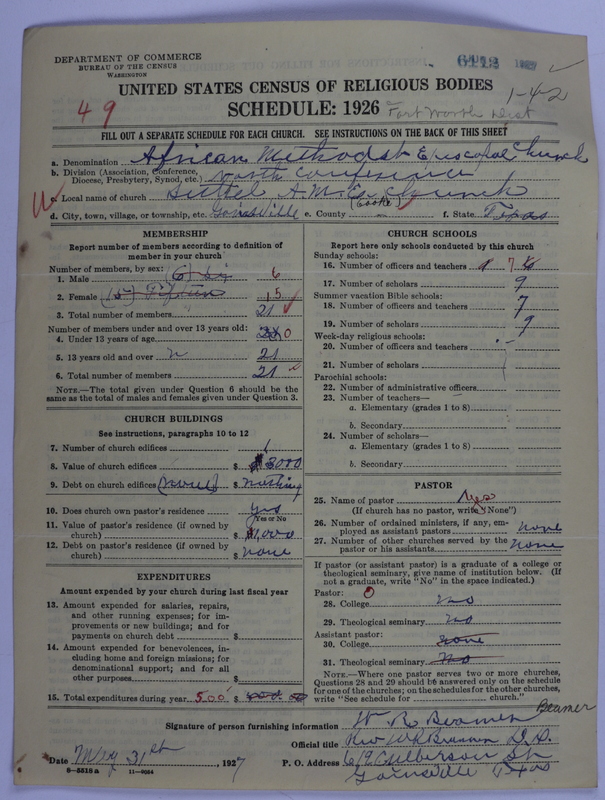 DEPARTMENT OF COMMERCE
BUREAU OF THE CENSUS
WASHINGTON
UNITED STATES CENSUS OF RELIGIOUS BODIES
SCHEDULE: 1926
49
Fort Worth Dist
1-42
FILL OUT A SEPARATE SCHEDULE FOR EACH CHURCH. SEE INSTRUCTIONS ON THE BACK OF THIS SHEET
a. Denomination African Methodist Episcopal Church
b. Division (Association, Conference, Diocese, Presbytery, Synod, etc.) North Conference
c. Local name of church Bethel A.M.E. Church
d. City, town, village, or township, etc. Gainsville e. County (Cooke) f. State Texas
MEMBERSHIP
Report number of members according to definition of member in your church
Number of members, by sex:
1. Male 6
2. Female 15
3. Total number of members 21
Number of members under and over 13 years old:
4. Under 13 years of age 0
5. 13 years old and over 21
6. Total number of members 21
NOTE.—The total given under Question 6 should be the same as the total of males and females given under Question 3.
CHURCH BUILDINGS
See instructions, paragraphs 10 to 12
7. Number of church edifices 1
8. Value of church edifices $ 3000
9. Debt on church edifices $ nothing
10. Does church own pastor's residence yes
Yes or No
11. Value of pastor's residence (if owned by church) $ 1,000
12. Debt on pastor's residence (if owned by church) $ none
EXPENDITURES
Amount expended by your church during last fiscal year
13. Amount expended for salaries, repairs, and other running expenses; for improvements or new buildings; and for payments on church debt $
14. Amount expended for benevolences, including home and foreign missions; for denominational support; and for all other purposes $
15. Total expenditures during year 500
CHURCH SCHOOLS
Report here only schools conducted by this church
Sunday schools:
16. Number of officers and teachers 7
17. Number of scholars 9
Summer vacation Bible schools:
18. Number of officers and teachers 7
19. Number of scholars 9
Week-day religious schools:
20. Number of officers and teachers
21. Number of scholars
Parochial schools:
22. Number of administrative officers
23. Number of teachers—
a. Elementary (grades 1 to 8)
b. Secondary
24. Number of scholars—
a. Elementary (grades 1 to 8)
b. Secondary
PASTOR
25. Name of pastor Yes
(If church has no pastor, write "None")
26. Number of ordained ministers, if any, employed as assistant pastors none
27. Number of other churches served by the pastor or his assistants none
If pastor (or assistant pastor) is a graduate of a college or theological seminary, give name of institution below. (If not a graduate, write "No" in the space indicated.)
Pastor: 0
28. College no
29. Theological seminary no
Assistant pastor:
30. College none
31. Theological seminary No
NOTE.—Where one pastor serves two or more churches, Questions 28 and 29 should be answered only on the schedule for one of the churches; on the schedules for the other churches, write "See schedule for church."
Beamer
Signature of person furnishing information W. R. Beamer
Official title Rev W R Beamer D.D.
Date May 31th, 1927
P. O. Address 619 Culberson St
Gainsville Texas
8—5516a 11—9084